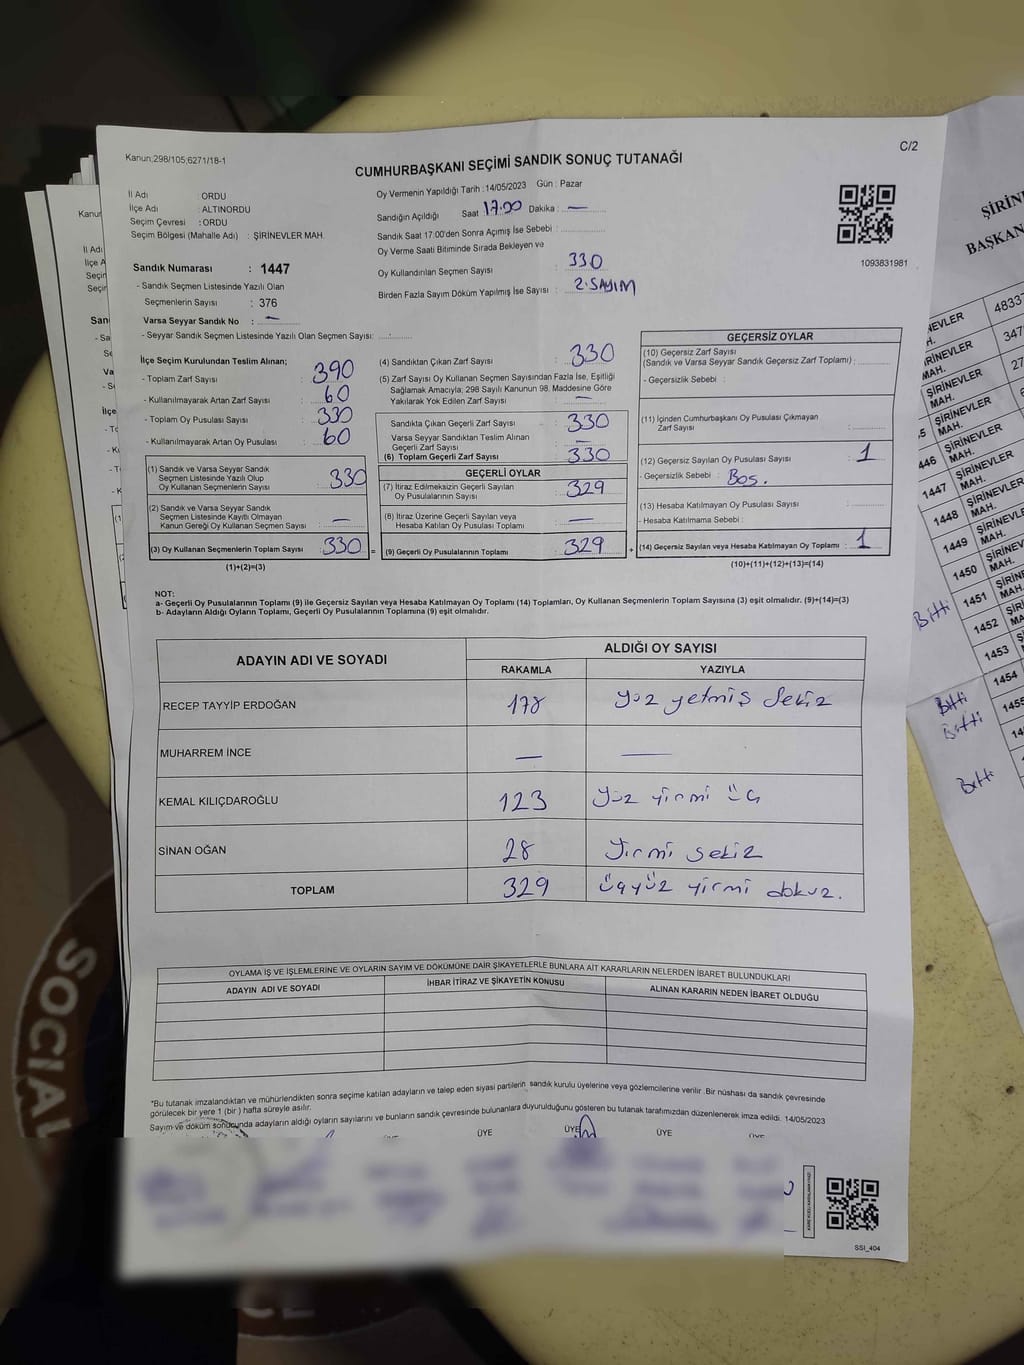 Kanun;298/105;6271/18-1
C/2
CUMHURBAŞKANI SEÇİMİ SANDIK SONUÇ TUTANAĞI
İl Adı : ORDU
İlçe Adı : ALTINORDU
Seçim Çevresi : ORDU
Seçim Bölgesi (Mahalle Adı) : ŞİRİNEVLER MAH.
Sandık Numarası : 1447
- Sandık Seçmen Listesinde Yazılı Olan
Seçmenlerin Sayısı : 376
Varsa Seyyar Sandık No : —
- Seyyar Sandık Seçmen Listesinde Yazılı Olan Seçmen Sayısı:
Oy Vermenin Yapıldığı Tarih :14/05/2023 Gün : Pazar
Sandığın Açıldığı Saat 17:00 Dakika : —
Sandık Saat 17:00'den Sonra Açımış İse Sebebi :
Oy Verme Saati Bitiminde Sırada Bekleyen ve
Oy Kullandırılan Seçmen Sayısı : 330
Birden Fazla Sayım Döküm Yapılmış İse Sayısı : 2. SAYIM
1093831981
İlçe Seçim Kurulundan Teslim Alınan;
- Toplam Zarf Sayısı : 390
- Kullanılmayarak Artan Zarf Sayısı : 60
- Toplam Oy Pusulası Sayısı : 330
- Kullanılmayarak Artan Oy Pusulası : 60
(1) Sandık ve Varsa Seyyar Sandık
Seçmen Listesinde Yazılı Olup
Oy Kullanan Seçmenlerin Sayısı : 330
(2) Sandık ve Varsa Seyyar Sandık
Seçmen Listesinde Kayıtlı Olmayan
Kanun Gereği Oy Kullanan Seçmen Sayısı : —
(3) Oy Kullanan Seçmenlerin Toplam Sayısı : 330 =
(1)+(2)=(3)
(4) Sandıktan Çıkan Zarf Sayısı : 330
(5) Zarf Sayısı Oy Kullanan Seçmen Sayısından Fazla İse, Eşitliği
Sağlamak Amacıyla; 298 Sayılı Kanunun 98. Maddesine Göre
Yakılarak Yok Edilen Zarf Sayısı : —
Sandıkta Çıkan Geçerli Zarf Sayısı : 330
Varsa Seyyar Sandıktan Teslim Alınan
Geçerli Zarf Sayısı : —
(6) Toplam Geçerli Zarf Sayısı : 330
GEÇERLİ OYLAR
(7) İtiraz Edilmeksizin Geçerli Sayılan
Oy Pusulalarının Sayısı : 329
(8) İtiraz Üzerine Geçerli Sayılan veya
Hesaba Katılan Oy Pusulası Toplamı : —
(9) Geçerli Oy Pusulalarının Toplamı : 329 +
GEÇERSİZ OYLAR
(10) Geçersiz Zarf Sayısı
(Sandık ve Varsa Seyyar Sandık Geçersiz Zarf Toplamı) :
- Geçersizlik Sebebi :
(11) İçinden Cumhurbaşkanı Oy Pusulası Çıkmayan
Zarf Sayısı :
(12) Geçersiz Sayılan Oy Pusulası Sayısı : 1
- Geçersizlik Sebebi : Boş.
(13) Hesaba Katılmayan Oy Pusulası Sayısı :
- Hesaba Katılmama Sebebi :
(14) Geçersiz Sayılan veya Hesaba Katılmayan Oy Toplamı : 1
(10)+(11)+(12)+(13)=(14)
NOT:
a- Geçerli Oy Pusulalarının Toplamı (9) ile Geçersiz Sayılan veya Hesaba Katılmayan Oy Toplamı (14) Toplamları, Oy Kullanan Seçmenlerin Toplam Sayısına (3) eşit olmalıdır. (9)+(14)=(3)
b- Adayların Aldığı Oyların Toplamı, Geçerli Oy Pusulalarının Toplamına (9) eşit olmalıdır.
ADAYIN ADI VE SOYADI
ALDIĞI OY SAYISI
RAKAMLA YAZIYLA
RECEP TAYYİP ERDOĞAN 178 yüz yetmiş sekiz
MUHARREM İNCE — —
KEMAL KILIÇDAROĞLU 123 yüz yirmi üç
SİNAN OĞAN 28 yirmi sekiz
TOPLAM 329 üçyüz yirmi dokuz.
OYLAMA İŞ VE İŞLEMLERİNE VE OYLARIN SAYIM VE DÖKÜMÜNE DAİR ŞİKAYETLERLE BUNLARA AİT KARARLARIN NELERDEN İBARET BULUNDUKLARI
ADAYIN ADI VE SOYADI İHBAR İTİRAZ VE ŞİKAYETİN KONUSU ALINAN KARARIN NEDEN İBARET OLDUĞU
*Bu tutanak imzalandıktan ve mühürlendikten sonra seçime katılan adayların ve talep eden siyasi partilerin sandık kurulu üyelerine veya gözlemcilerine verilir. Bir nüshası da sandık çevresinde
görülecek bir yere 1 (bir ) hafta süreyle asılır.
Sayım ve döküm sonucunda adayların aldığı oyların sayılarını ve bunların sandık çevresinde bulunanlara duyurulduğunu gösteren bu tutanak tarafımızdan düzenlenerek imza edildi. 14/05/2023
ÜYE ÜYE ÜYE ÜYE ÜYE
SSI_404
ŞİRİN
BAŞKAN
EVLER 4833
H.
ŞİRİNEVLER 347
MAH.
ŞİRİNEVLER 27
MAH.
5 ŞİRİNEVLER
MAH.
446 ŞİRİNEVLER
MAH.
1447 ŞİRİNEVLER
MAH.
1448 ŞİRİNEVLER
MAH.
1449
1450
Bitti 1451
1452
1453
Bitti 1454
Bitti 1455
Bitti
SOCIAL